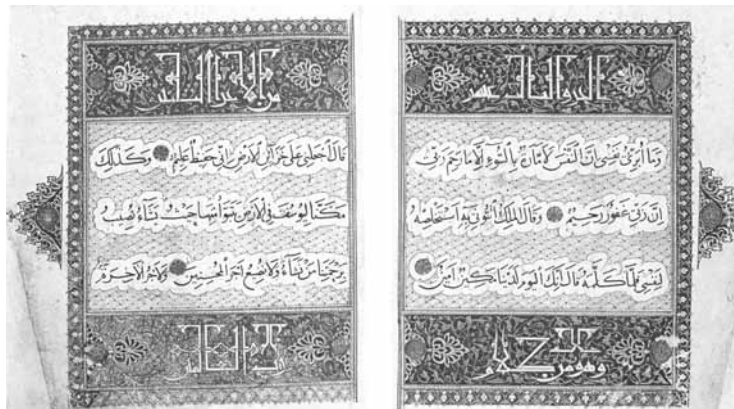 الجزو الثالث عشر
وَمَا أُبَرِّئُ نَفْسِي إِنَّ النَّفْسَ لَأَمَّارَةٌ بِالسُّوءِ إِلَّا مَا رَحِمَ رَبِّي
إِنَّ رَبِّي غَفُورٌ رَحِيمٌ وَقَالَ الْمَلِكُ ائْتُونِي بِهِ أَسْتَخْلِصْهُ
لِنَفْسِي فَلَمَّا كَلَّمَهُ قَالَ إِنَّكَ الْيَوْمَ لَدَيْنَا مَكِينٌ أَمِينٌ
وهو من كلام
من الاجزا
قَالَ اجْعَلْنِي عَلَى خَزَائِنِ الْأَرْضِ إِنِّي حَفِيظٌ عَلِيمٌ وَكَذَلِكَ
مَكَّنَّا لِيُوسُفَ فِي الْأَرْضِ يَتَبَوَّأُ مِنْهَا حَيْثُ يَشَاءُ نُصِيبُ
بِرَحْمَتِنَا مَنْ نَشَاءُ وَلَا نُضِيعُ أَجْرَ الْمُحْسِنِينَ وَلَأَجْرُ الْآخِرَةِ